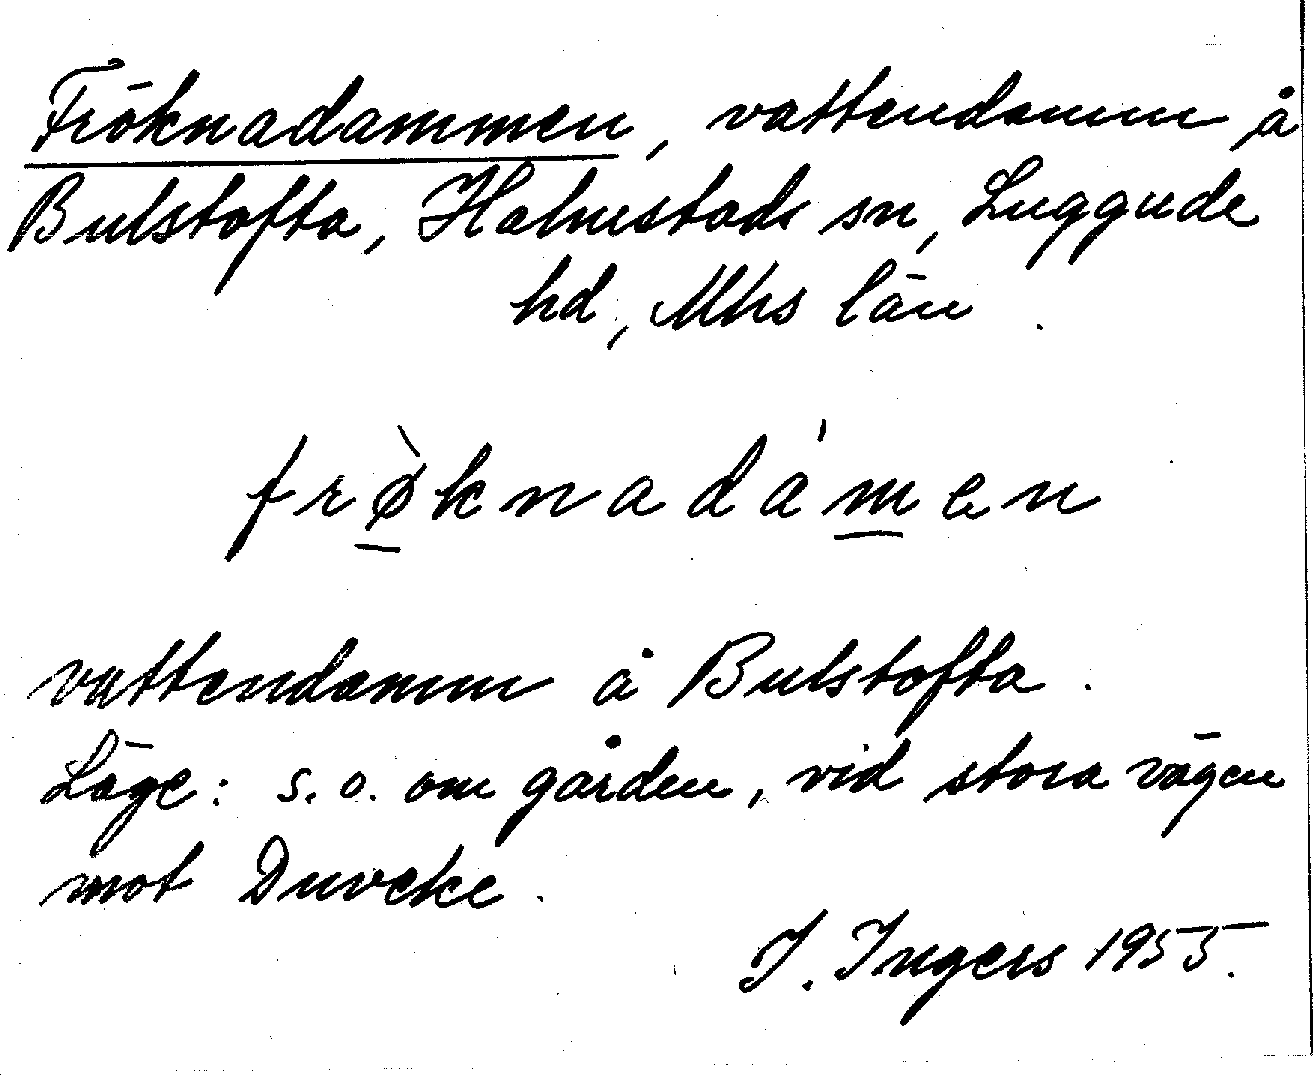 Fröknadammen, vattendamm å
Bulstofta, Halmstads sn, Luggude
hd, Mhs län.
frø̀knadámen
vattendamm å Bulstofta.
Läge: s.o. om gården, vid stora vägen
mot Duveke.
I. Ingers 1955.